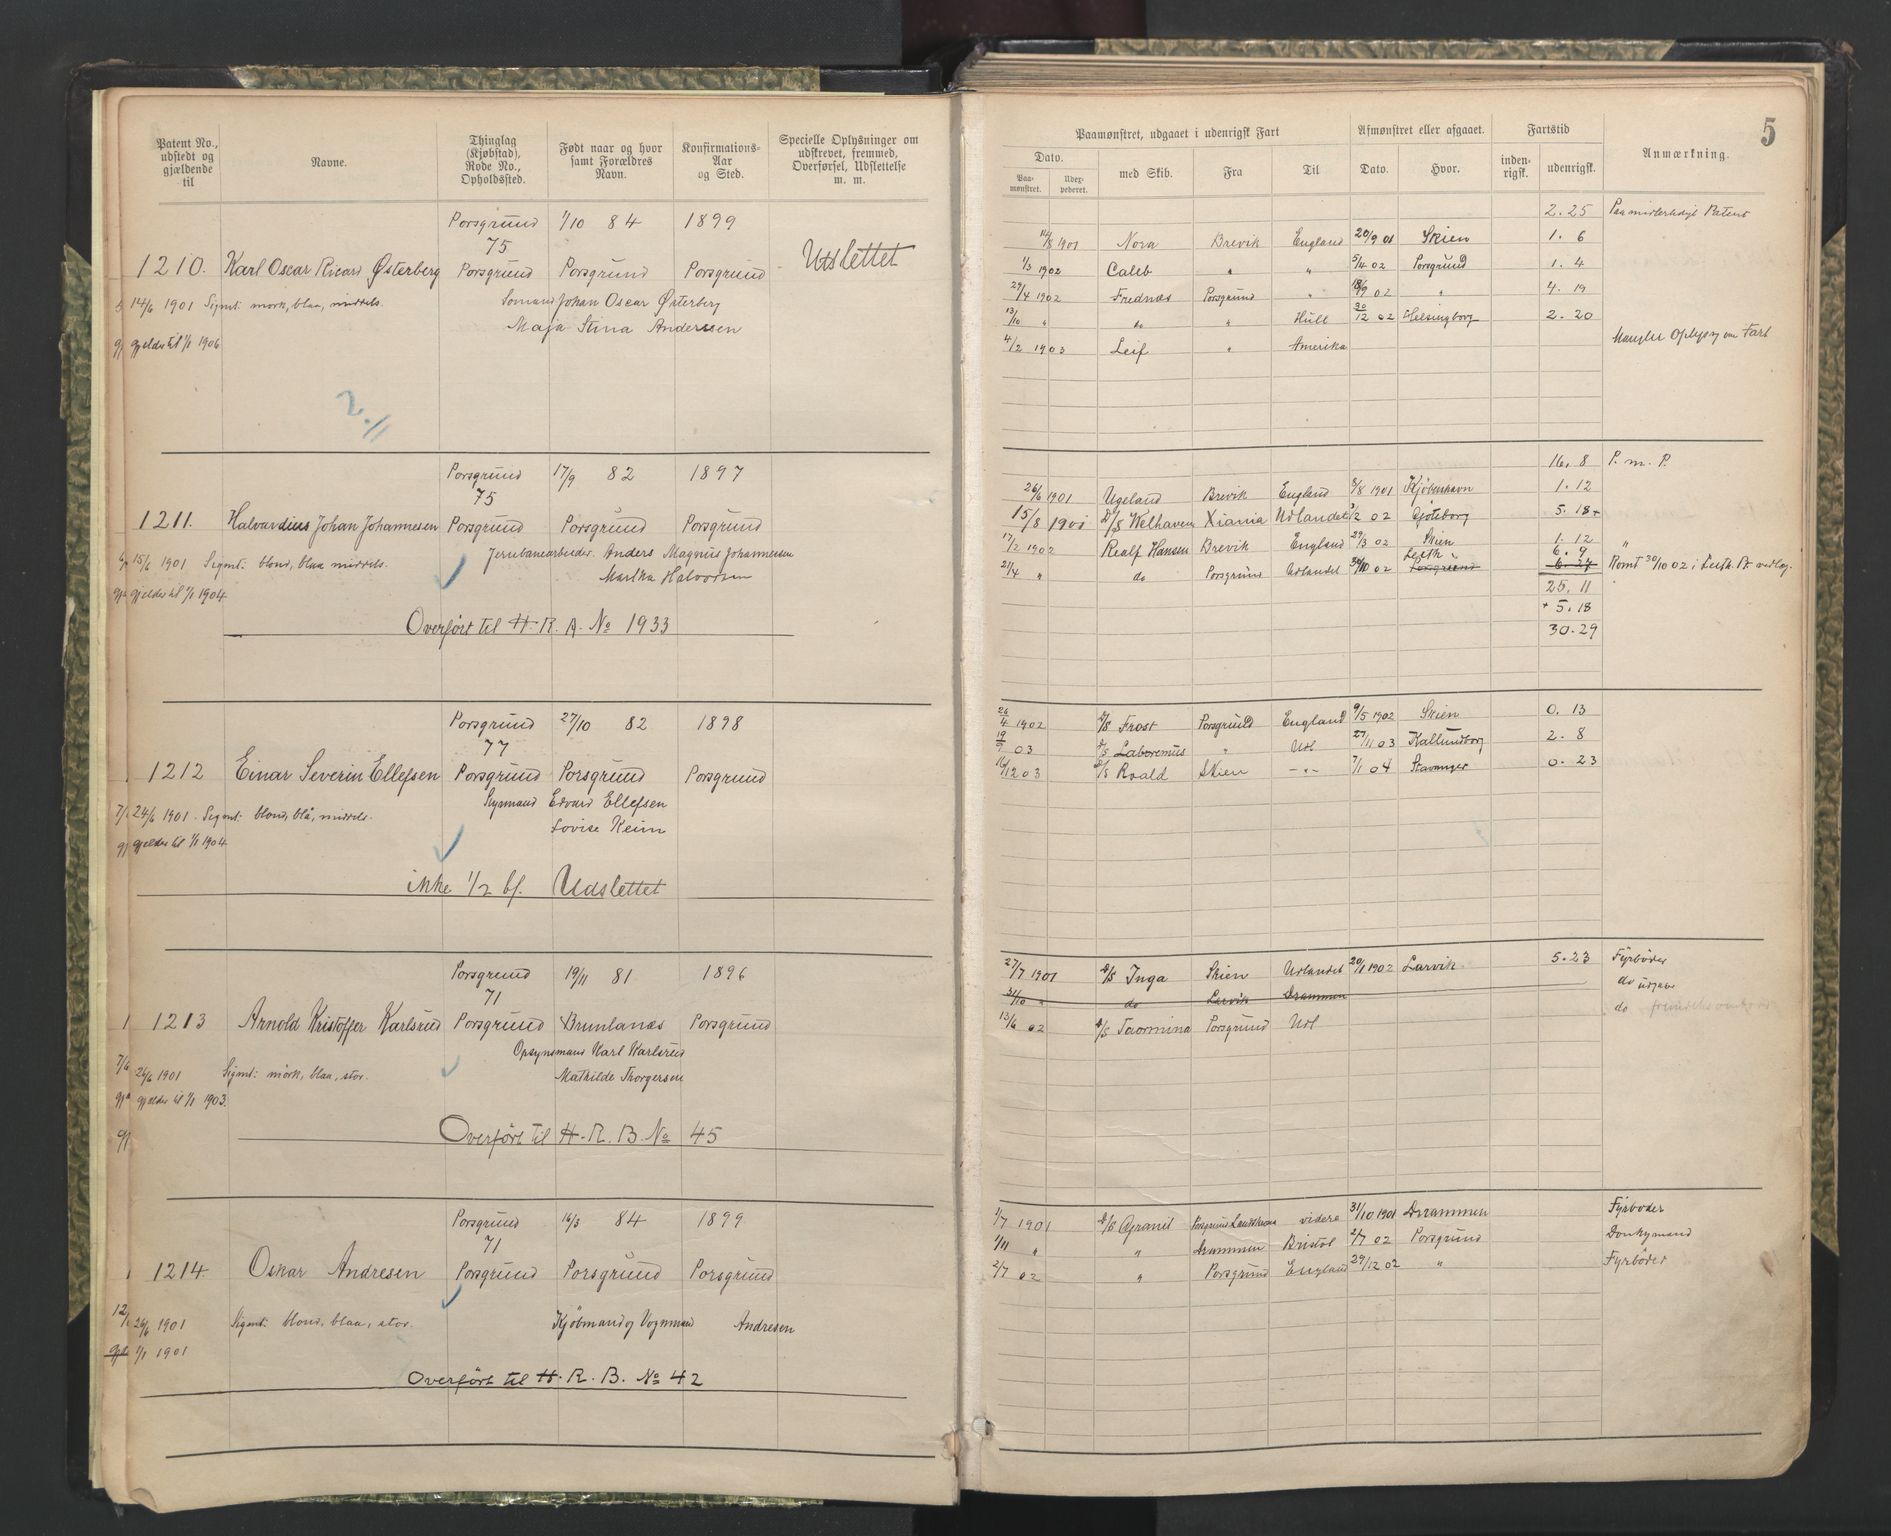 Patent No., udstedt og gjældende til
Navne.
Thinglag (Kjøbstad), Rode No., Opholdssted.
Født naar og hvor samt Forældres Navn.
Konfirmations-Aar og Sted.
Specielle Oplysninger om udskrevet, fremmed, Overførsel, Udslettelse m. m.
Porsgrund 1/10 84 1899
75
1210. Karl Oscar Ricard Østerberg Porsgrund Porsgrund Porsgrund Udslettet
14/6 1901 Signt: mørk, blaa, middels. Sømand Johan Oscar Østerberg
Maja Stina Anderssen
gjelder til 1/1 1906
2.11
Porsgrund 17/9 82 1897
75
1211. Halvardius Johan Johannesen Porsgrund Porsgrund Porsgrund
15/6 1901 Signt: blond, blaa middels. Jernbanearbeider. Anders Magnus Johannessen
Martha Halvorsen
gjelder til 1/1 1904.
Overført til H. R. A. No 1933
Porsgrund 27/10 82 1898
77
1212 Einar Severin Ellefsen Porsgrund Porsgrund Porsgrund
Styrmand Edvard Ellefsen
24/6 1901. Signt: blond, blå, middels.
Lovise Keim
gjelder til 1/1 1904
ikke 1/2 bf. Udslettet
Porsgrund 19/11 81 1896
71
1213 Arnold Kristoffer Karlsrud Porsgrund Brunlanæs Porsgrund
Opsynsmand Karl Karlsrud
26/6 1901 Signt: mörk, blaa, stor.
Mathilde Thorgersen
gjelder til 1/1 1903.
Overført til H. R. B. No 45
Porsgrund 16/3 84 1899
71
1214. Oskar Andresen Porsgrund Porsgrund Porsgrund
26/6 1901 Signt: blond, blaa, stor. Kjöbmand og Vognmand Andresen
1/1 1901
Overfört til H. R. B. No 42
5
Paamønstret, udgaaet i udenrigsk Fart
Afmønstret eller afgaaet.
Fartstid
Anmærkning.
Dato.
Paa-mønstret.
Udex-pederet.
med Skib.
Fra
Til
Dato.
Hvor.
inden-rigsk.
udenrigsk.
2. 25 Paa midlertidigt Patent
14/8 1901 Nora Brevik England 20/9 01 Skien 1. 6
1/3 1902 Caleb " " 5/4 02 Porsgrund 1. 4
29/4 1902 Frednæs Porsgrund " 18/9 02 " 4. 19
13/10 " do " Hull 30/12 02 Helsingborg 2. 20
4/2 1903 Leif " Amerika Mangler Oplysg om Fart
16. 8 P. m. P.
26/6 1901 Ugeland Brevik England 8/8 1901 Kjøbenhavn 1. 12
15/8 1901 D/S Welhaven Xiania Udlandet 3/2 02 Gjøteborg 5. 18+
17/2 1902 Realf Hansen Brevik England 29/3 02 Skien 1. 12 "
21/4 " do Porsgrund Udlandet 30/10 02 Porsgrund Leith 6. 9 6. 27 Römt 30/10 02 i Leith.
25. 11 "
+ 5. 18
30. 29
26/4 1902 D/S Frost Porsgrund England 9/5 1902 Skien 0. 13
19/9 03 D/S Laboremus " Udl 27/11 03 Kallundborg 2. 8
16/12 03 D/S Roald Skien -"- 7/1 04 Stavanger 0. 23
27/7 1901 D/S Inga Skien Udlandet 20/1 1902 Larvik 5. 23 Fyrböder
31/10 " do Larvik Drammen do udgaar
13/6 02 D/S Taormina Porsgrund Udl do
1/7 1901 D/S Granit videre 31/10 1901 Drammen Fyrböder
1/11 " " Drammen Bristol 2/7 02 Porsgrund Donkymand
2/7 02 " Porsgrund England 29/12 02 " Fyrböder